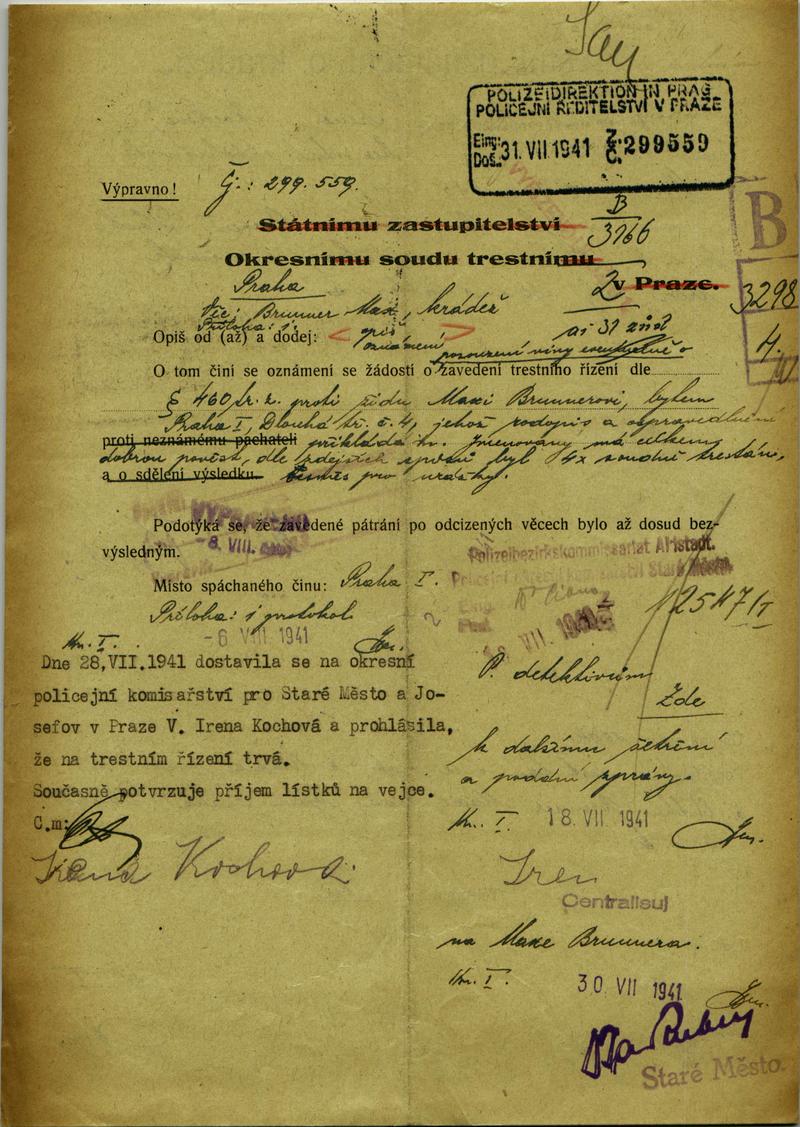 POLIZEIDIREKTION IN PRAG
POLICEJNÍ ŘEDITELSTVÍ V PRAZE
Eing:
Doš.: 31.VII 1941 Z. Č. 299559
Výpravno! Č.: 299.559.
B
3166
Státnímu zastupitelství
Okresnímu soudu trestnímu
B
Praha
2
v Praze.
3298
Brunner Max, krádež
Příloha: 1.
Opiš od (až) a dodej: opiš oznámení
4.
posouzení viny eventuelně o
O tom činí se oznámení se žádostí o zavedení trestního řízení dle
§ 460 tr. z. proti židu Maxi Brunnerovi, bytem
Praha I, Dlouhá tř. č. 4, jehož rodopis a ospravedlnění
proti neznámému pachateli přikládá se. Jmenovaný má celkem
dobrou pověst, dle zdejších zpráv byl 4x soudně trestán,
a o sdělení výsledku. pro urážky.
Podotýká se, že zavedené pátrání po odcizených věcech bylo až dosud bez-
výsledným.
-8. VIII.
Polizeibezirkskommissariat Altstadt.
Staré Město.
Místo spáchaného činu: Praha I.
Příloha: 1 protokol
-6 VIII 1941
VII. 1941
Dne 28.VII.1941 dostavila se na okresní
policejní komisařství pro Staré Město a Jo-
sefov v Praze V. Irena Kochová a prohlásila,
že na trestním řízení trvá.
Současně potvrzuje příjem lístků na vejce.
C.m:
Irena Kochová.
P. detektivům
Zde
k dalšímu šetření
a podání zprávy.
18. VII 1941
Centralisuj
na Maxe Brunnera.
30. VII 1941
Staré Město.